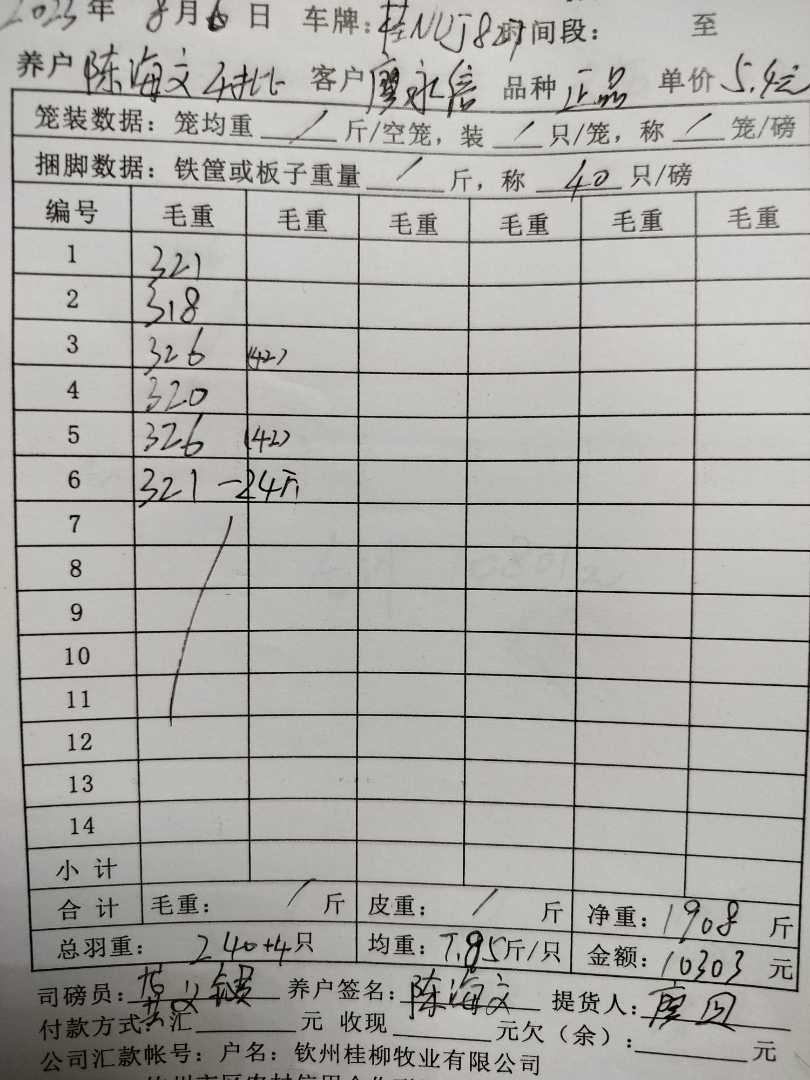 2023年 8月6日 车牌:桂NUJ827 时间段: 至
养户 陈海文 客户 廖永信 品种 正品 单价 5.4元
笼装数据: 笼均重 / 斤/空笼, 装 / 只/笼, 称 / 笼/磅
捆脚数据: 铁筐或板子重量 / 斤, 称 40 只/磅
编号 毛重 毛重 毛重 毛重 毛重 毛重
1 321
2 318
3 326 (42)
4 320
5 326 (42)
6 321 -24斤
7
8
9
10
11
12
13
14
小 计
合 计 毛重: / 斤 皮重: / 斤 净重: 1908 斤
总羽重: 240+4只 均重: 7.85斤/只 金额: 10303 元
司磅员: 养户签名: 陈海文 提货人:
付款方式: 汇 元 收现 元欠(余): 元
公司汇款帐号: 户名: 钦州桂柳牧业有限公司